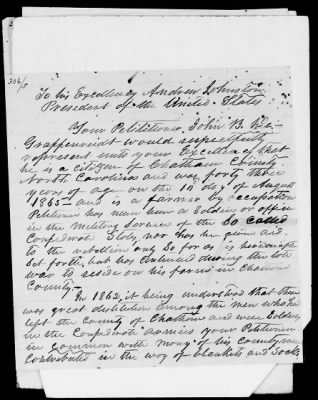 306/5
To his Excellency Andrew Johnston
President of the United States
Your Petitioner, John B. De-
Graffenreidt would respectfully
represent unto your Excellency that
he is a citizen of Chatham County
North Carolina and was forty three
years of age on the 14 day of August
1865 and is a farmer by occupation
Petitioner has never been a Soldier or officer
in the Military Services of the So called
Confederate States, nor has he given aid
to the rebellion only So far as is hereinafter
Set forth, but has continued during the late
war to reside on his farm in Chatham
County.
In 1863, it being understood that there
was great destitution among the men who had
left the County of Chatham and were Soldiers
in the Confederate armies your Petitioner
in common with many of his countrymen
contributed in the way of blankets and Socks